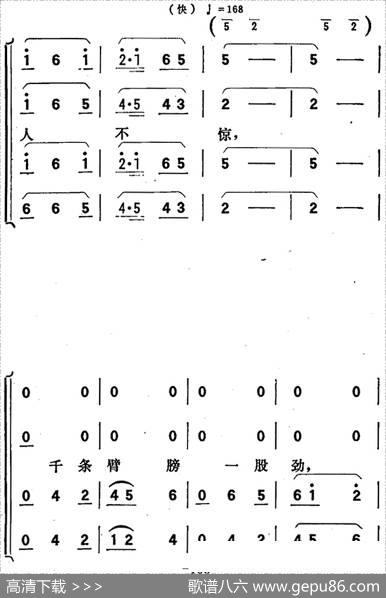 （快）♩=168
( 5 2 5 2 )
i 6 i | 2·i 6 5 | 5 — | 5 — |
i 6 5 | 4·5 4 3 | 2 — | 2 — |
人 不 惊，
i 6 i | 2·i 6 5 | 5 — | 5 — |
6 6 5 | 4·5 4 3 | 2 — | 2 — |
0 0 | 0 0 | 0 0 | 0 0 |
0 0 | 0 0 | 0 0 | 0 0 |
千 条 臂 膀 一 股 劲，
0 4 2 | 4 5 6 | 0 6 5 | 6 i 2 |
0 4 2 | 1 2 4 | 0 4 2 | 4 5 6
高清下载 >>>
歌谱八六 www.gepu86.com